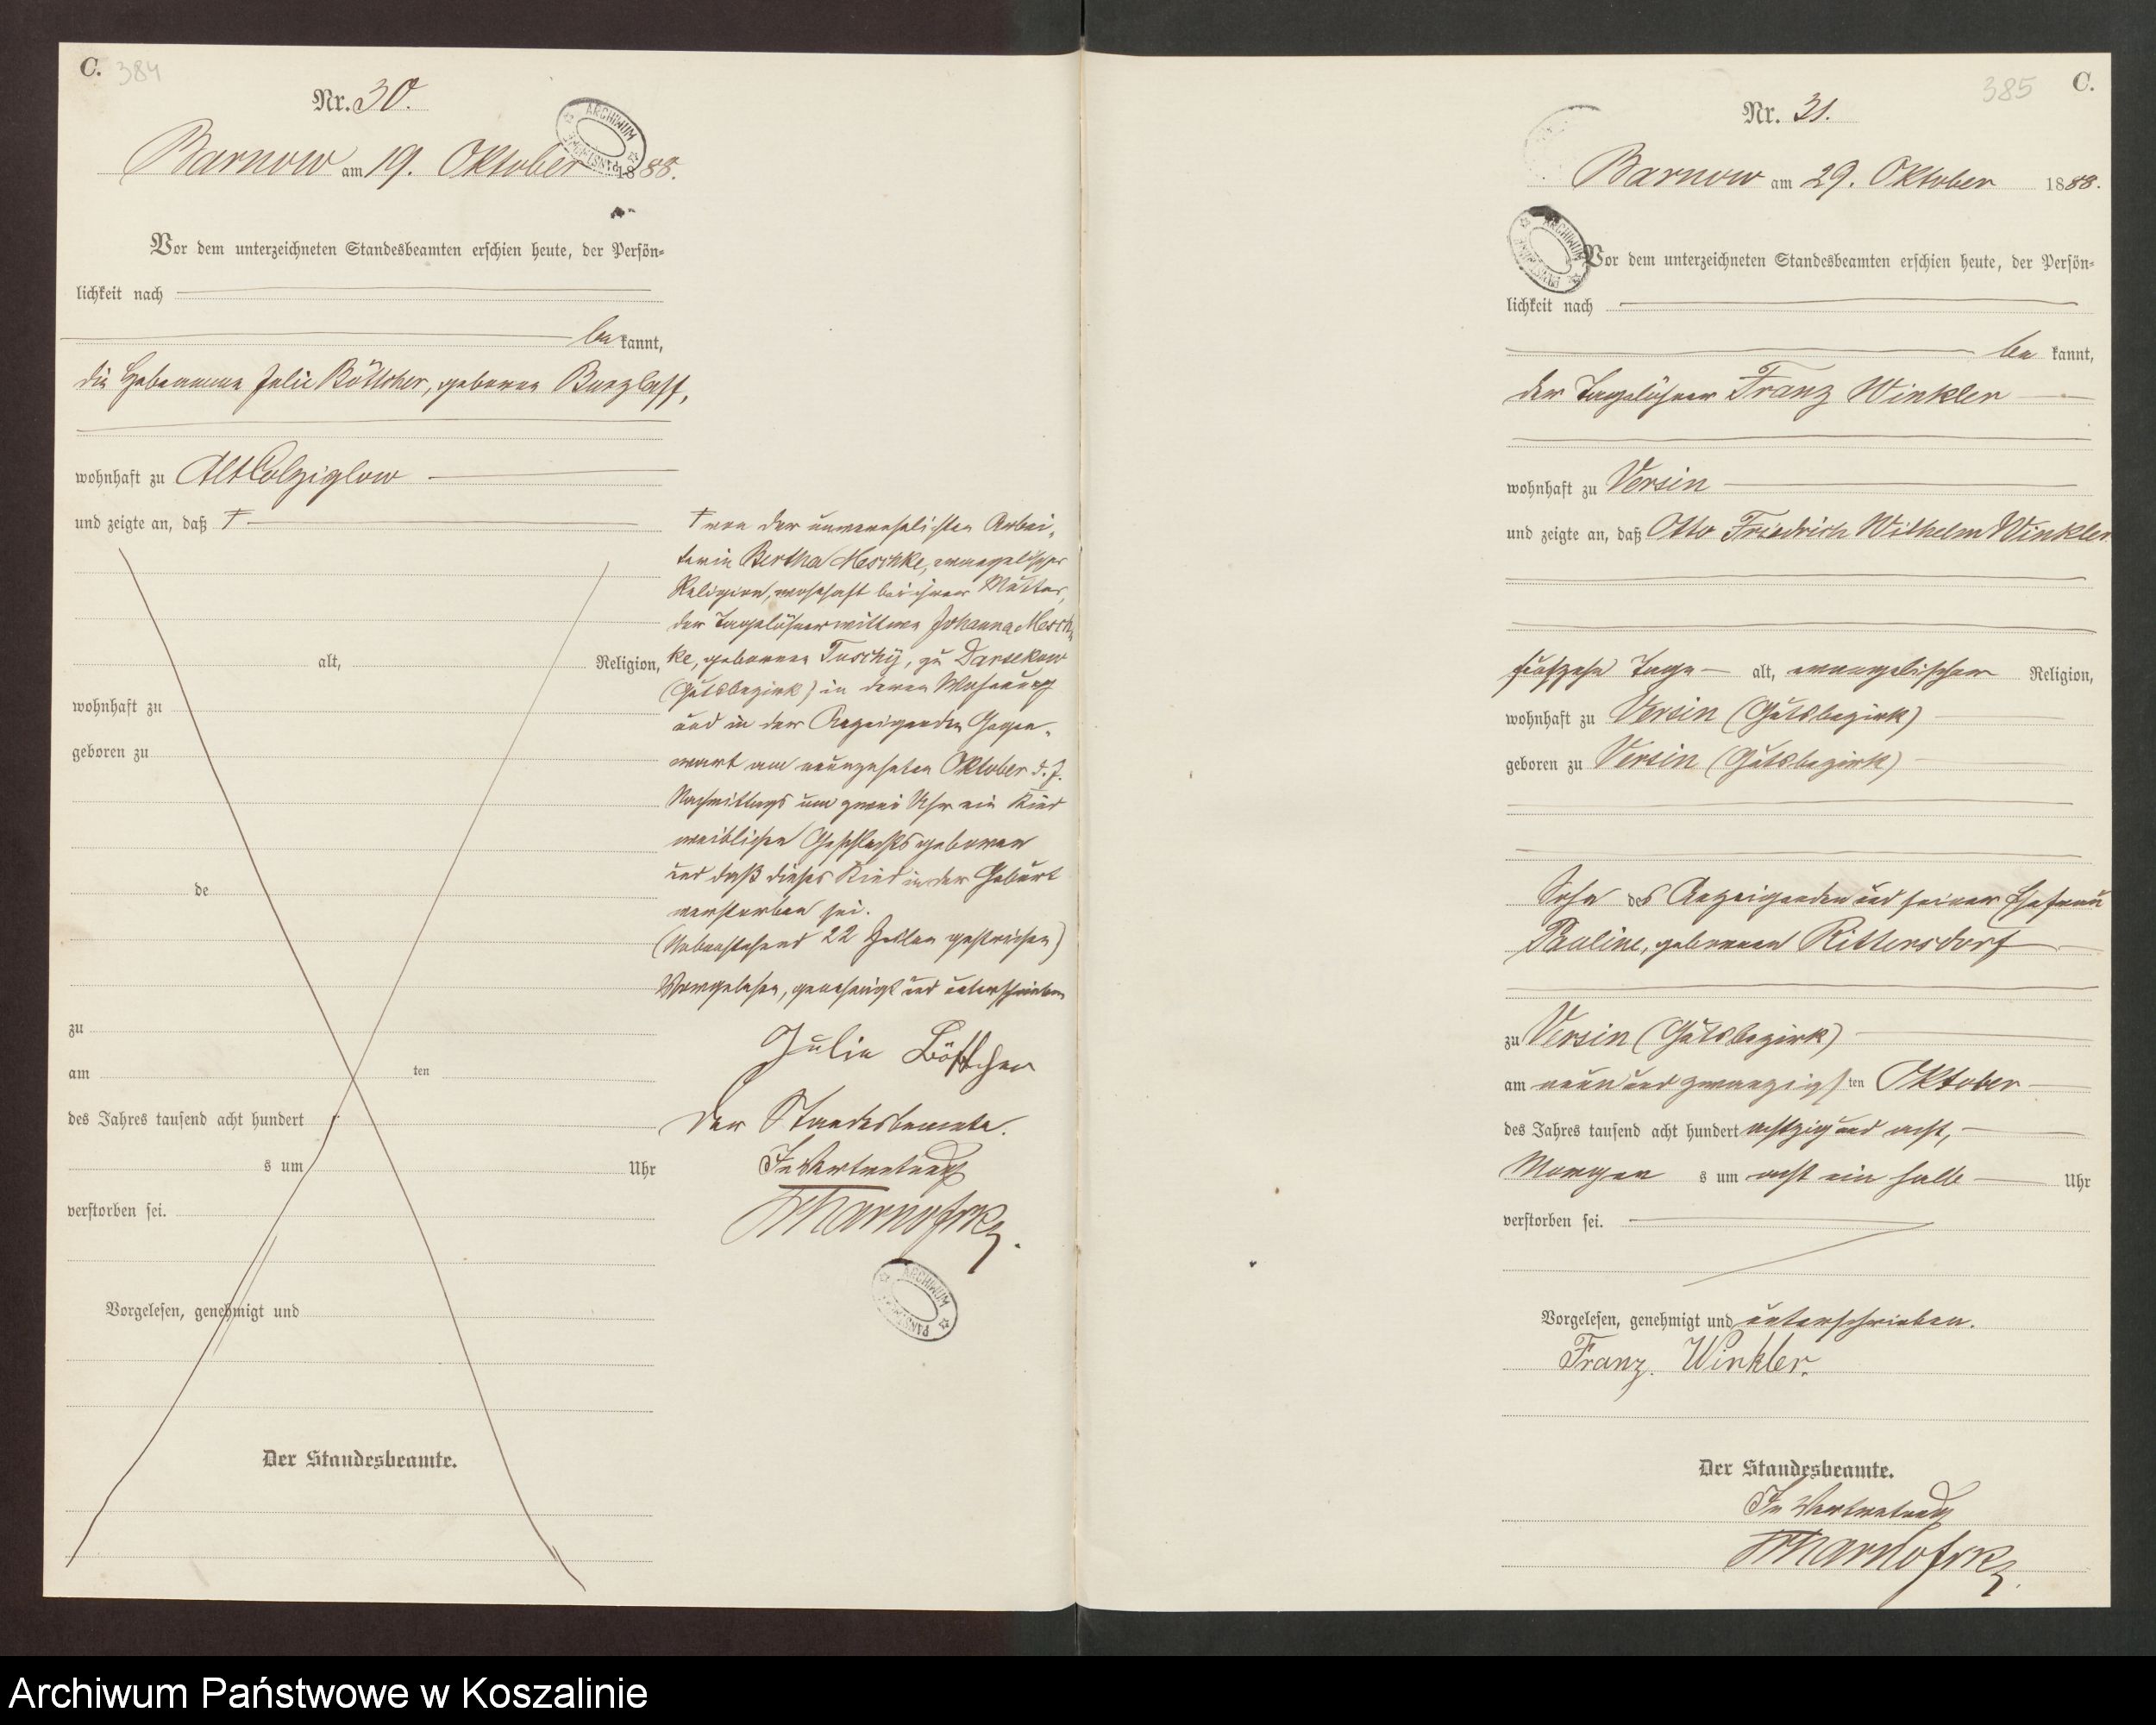 C. 384
Nr. 30.
Barnow am 19. Oktober 1888.
Vor dem unterzeichneten Standesbeamten erschien heute, der Persön-
lichkeit nach
be kannt,
die Hebamme Julie Böttcher, geborene Burzlaff,
wohnhaft zu Alt Colziglow
und zeigte an, daß †
alt, Religion,
wohnhaft zu
geboren zu
de
zu
am ten
des Jahres tausend acht hundert
s um Uhr
verstorben sei.
Vorgelesen, genehmigt und
Der Standesbeamte.
† von der unverehelichten Arbei-
terin Bertha Meschke, evangelischer
Religion, wohnhaft bei ihrer Mutter,
der Tagelöhnerwittwe Johanna Mesch-
ke, geborenen Tuschÿ, zu Darsekow
(Gutsbezirk) in deren Wohnung
und in der Anzeigenden Gegen-
wart am neunzehnten Oktober d. J.
Nachmittags um zwei Uhr ein Kind
weiblichen Geschlechts geboren
und daß dieses Kind in der Geburt
verstorben sei.
(Nebenstehend 22 Zeilen gestrichen)
Vorgelesen, genehmigt und unterschrieben
Julie Böttcher
Der Standesbeamte.
In Vertretung
ARCHIWUM PAŃSTWOWE
385 C.
Nr. 31.
Barnow am 29. Oktober 1888.
Vor dem unterzeichneten Standesbeamten erschien heute, der Persön-
lichkeit nach
be kannt,
der Tagelöhner Franz Winkler
wohnhaft zu Versin
und zeigte an, daß Otto Friedrich Wilhelm Winkler
fünfzehn Tage alt, evangelischer Religion,
wohnhaft zu Versin (Gutsbezirk)
geboren zu Versin (Gutsbezirk)
Sohn des Anzeigenden und seiner Ehefrau
Pauline, geborenen Rittersdorf
zu Versin (Gutsbezirk)
am neun und zwanzigsten Oktober
des Jahres tausend acht hundert achtzig und acht,
Morgens um acht ein halb Uhr
verstorben sei.
Vorgelesen, genehmigt und unterschrieben.
Franz. Winkler.
Der Standesbeamte.
In Vertretung
Archiwum Państwowe w Koszalinie